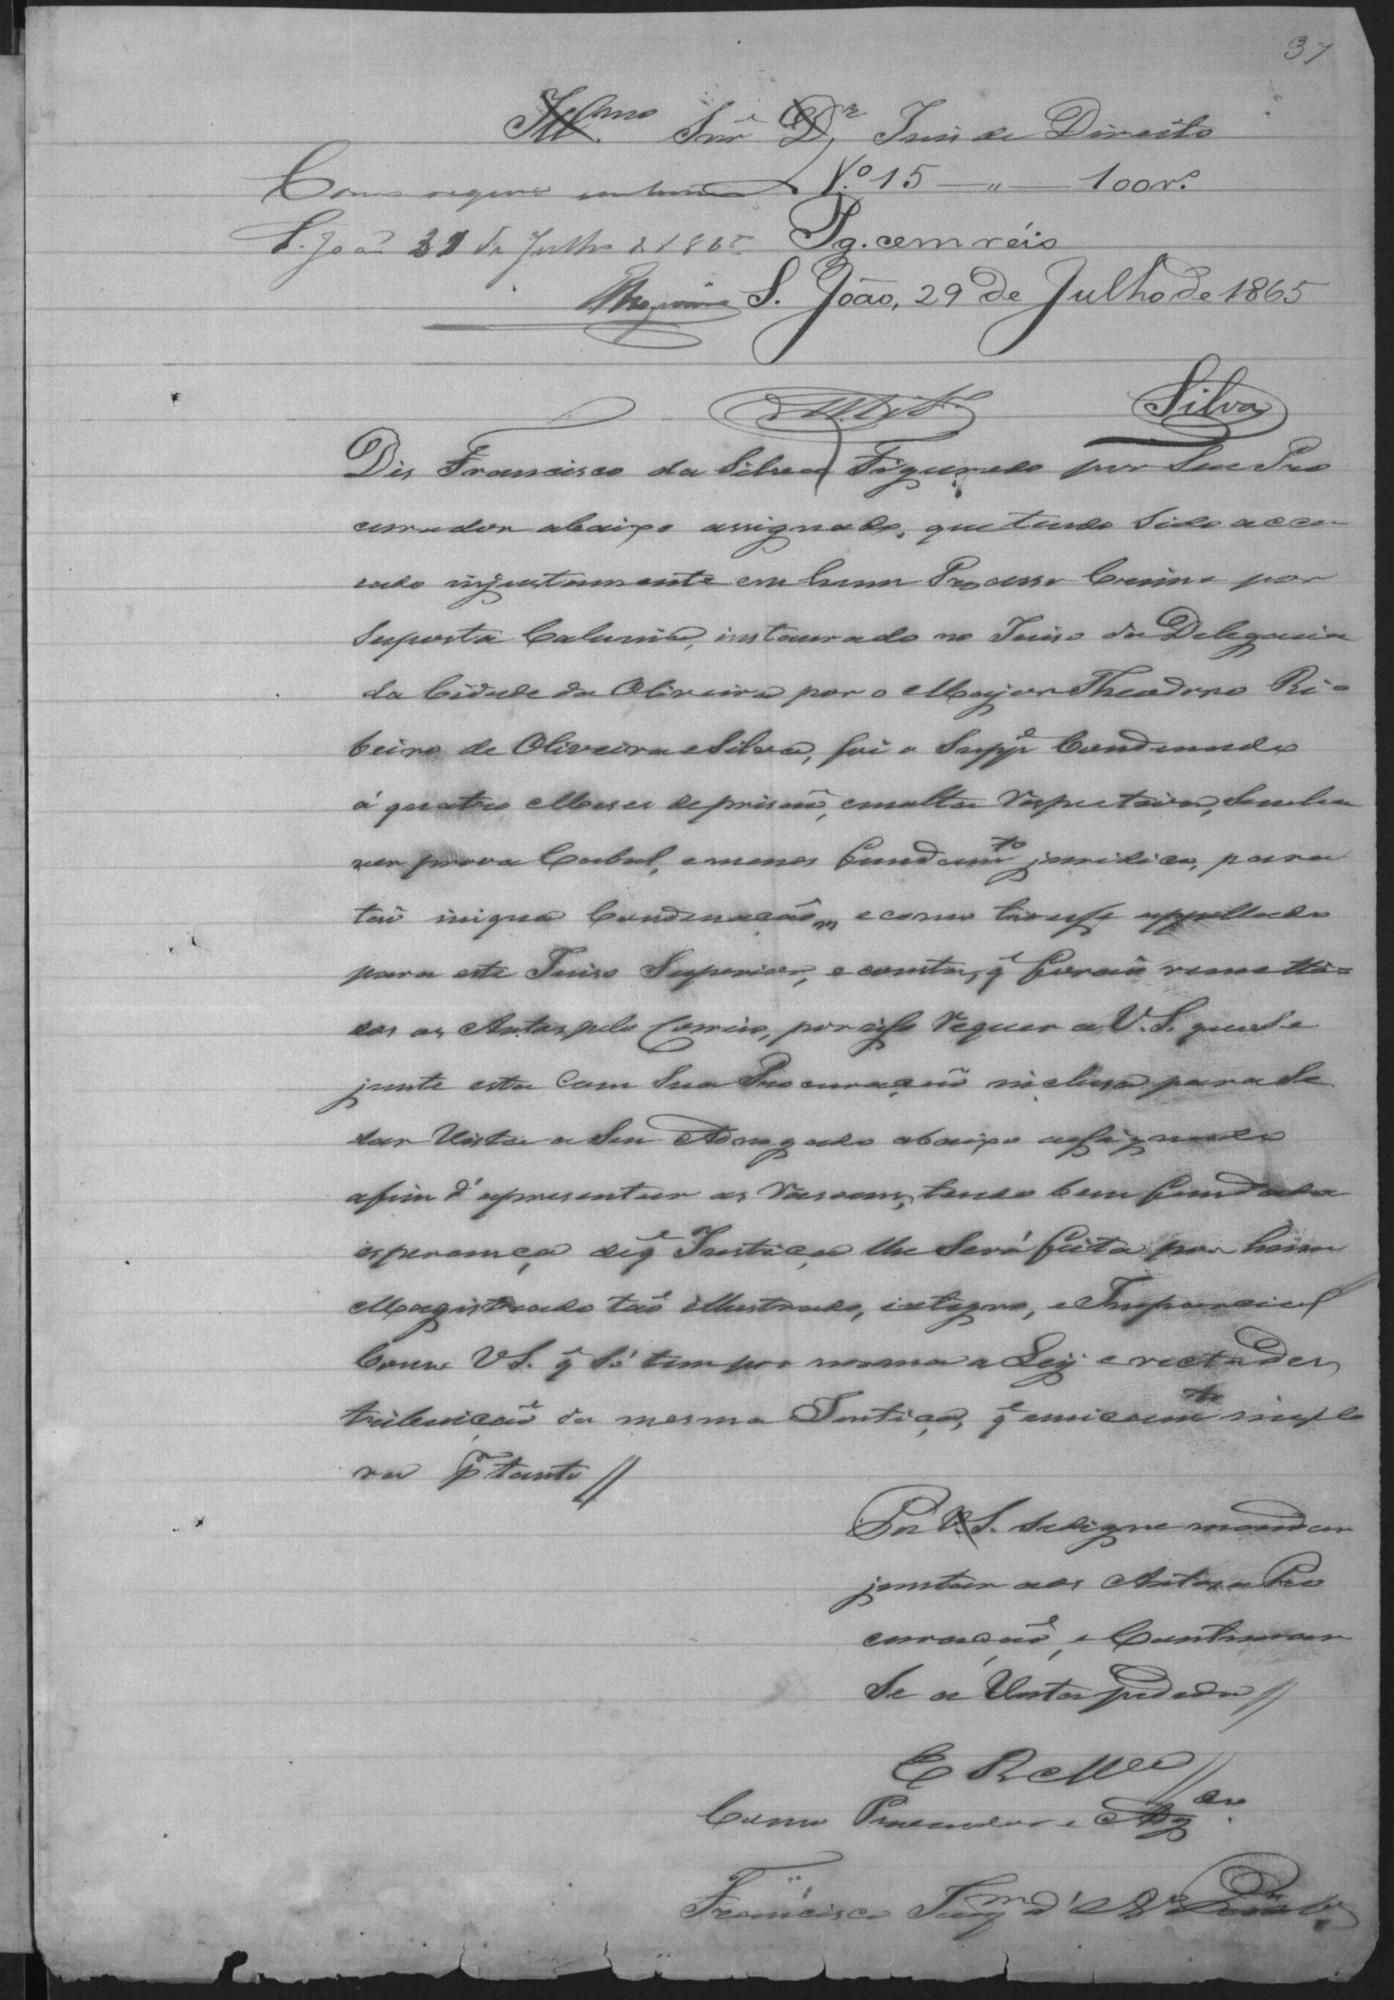 37
Illmo Snr Dr Juis de Direito
Como requer
N.o 15 — " — 100 rs
S. João 31 de Julho d 1865
Pg. cem réis
S. João, 29 de Julho de 1865
Silva
Dis Francisco da Silva Figueredo por Seu Pro
curador abaixo assignado, que tendo Sido accu
sado injustamente em hum Processo Crime por
Suposta Calunia, instaurado no Juiso da Delegacia
da Cidade da Oliveira por o Major Theodoro Ri=
beiro de Oliveira e Silva, foi o Suppe Condenado
á quatro Meses de prisaõ, e multa respectiva, Sem ha
ver prova Cabal, e menos fundamto juridico, para
taõ iniqua Condenação, e como tivesse appellado
para este Juiso Superior, e consta, q̃ foraõ remetti=
dos os Autos pelo Correio, por isso requer a V. S. que Se
junte esta Com Sua Procuraçaõ inclusa para Se
dar Vista a Seu Advogado abaixo assignado
afim d'apresentar as rasoens, tendo bem fundada
esperança de q̃ Justiça lhe Será feita por hum
Magistrado taõ illustrado, integro, e Imparcial
Como V S. q̃ Só tem por norma a Ley e recta des
tribuiçaõ da mesma Justiça, q̃ unicamte implo
ra pr tanto //
Por V. S. Se digne mandar
juntar aos Autos a Pro
curaçaõ, e Continuar
Se a Vista pedida //
E R Mce //
Como Procurador e Adgdo
Francisco